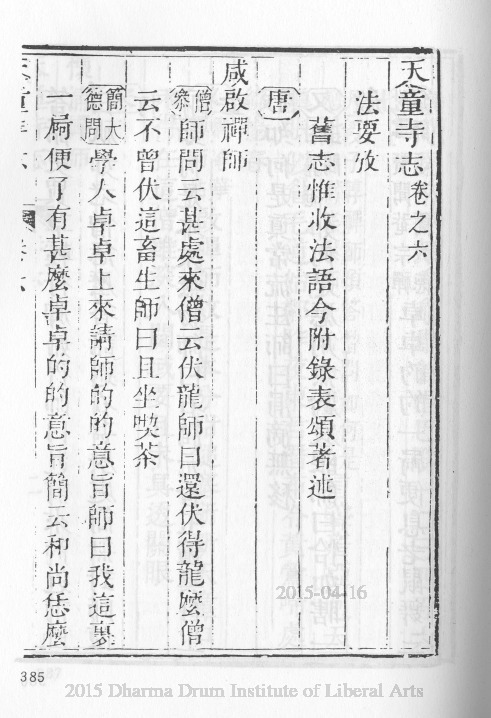 天童寺志卷之六
法要攷
舊志惟收法語今附錄表頌著述
唐
咸啟禪師
僧參師問云甚處來僧云伏龍師曰還伏得龍麼僧
云不曾伏這畜生師曰且坐喫茶
簡大德問學人卓卓上來請師的的意旨師曰我這裏
一屙便了有甚麼卓卓的的意旨簡云和尚恁麼
385
2015-04-16
2015 Dharma Drum Institute of Liberal Arts